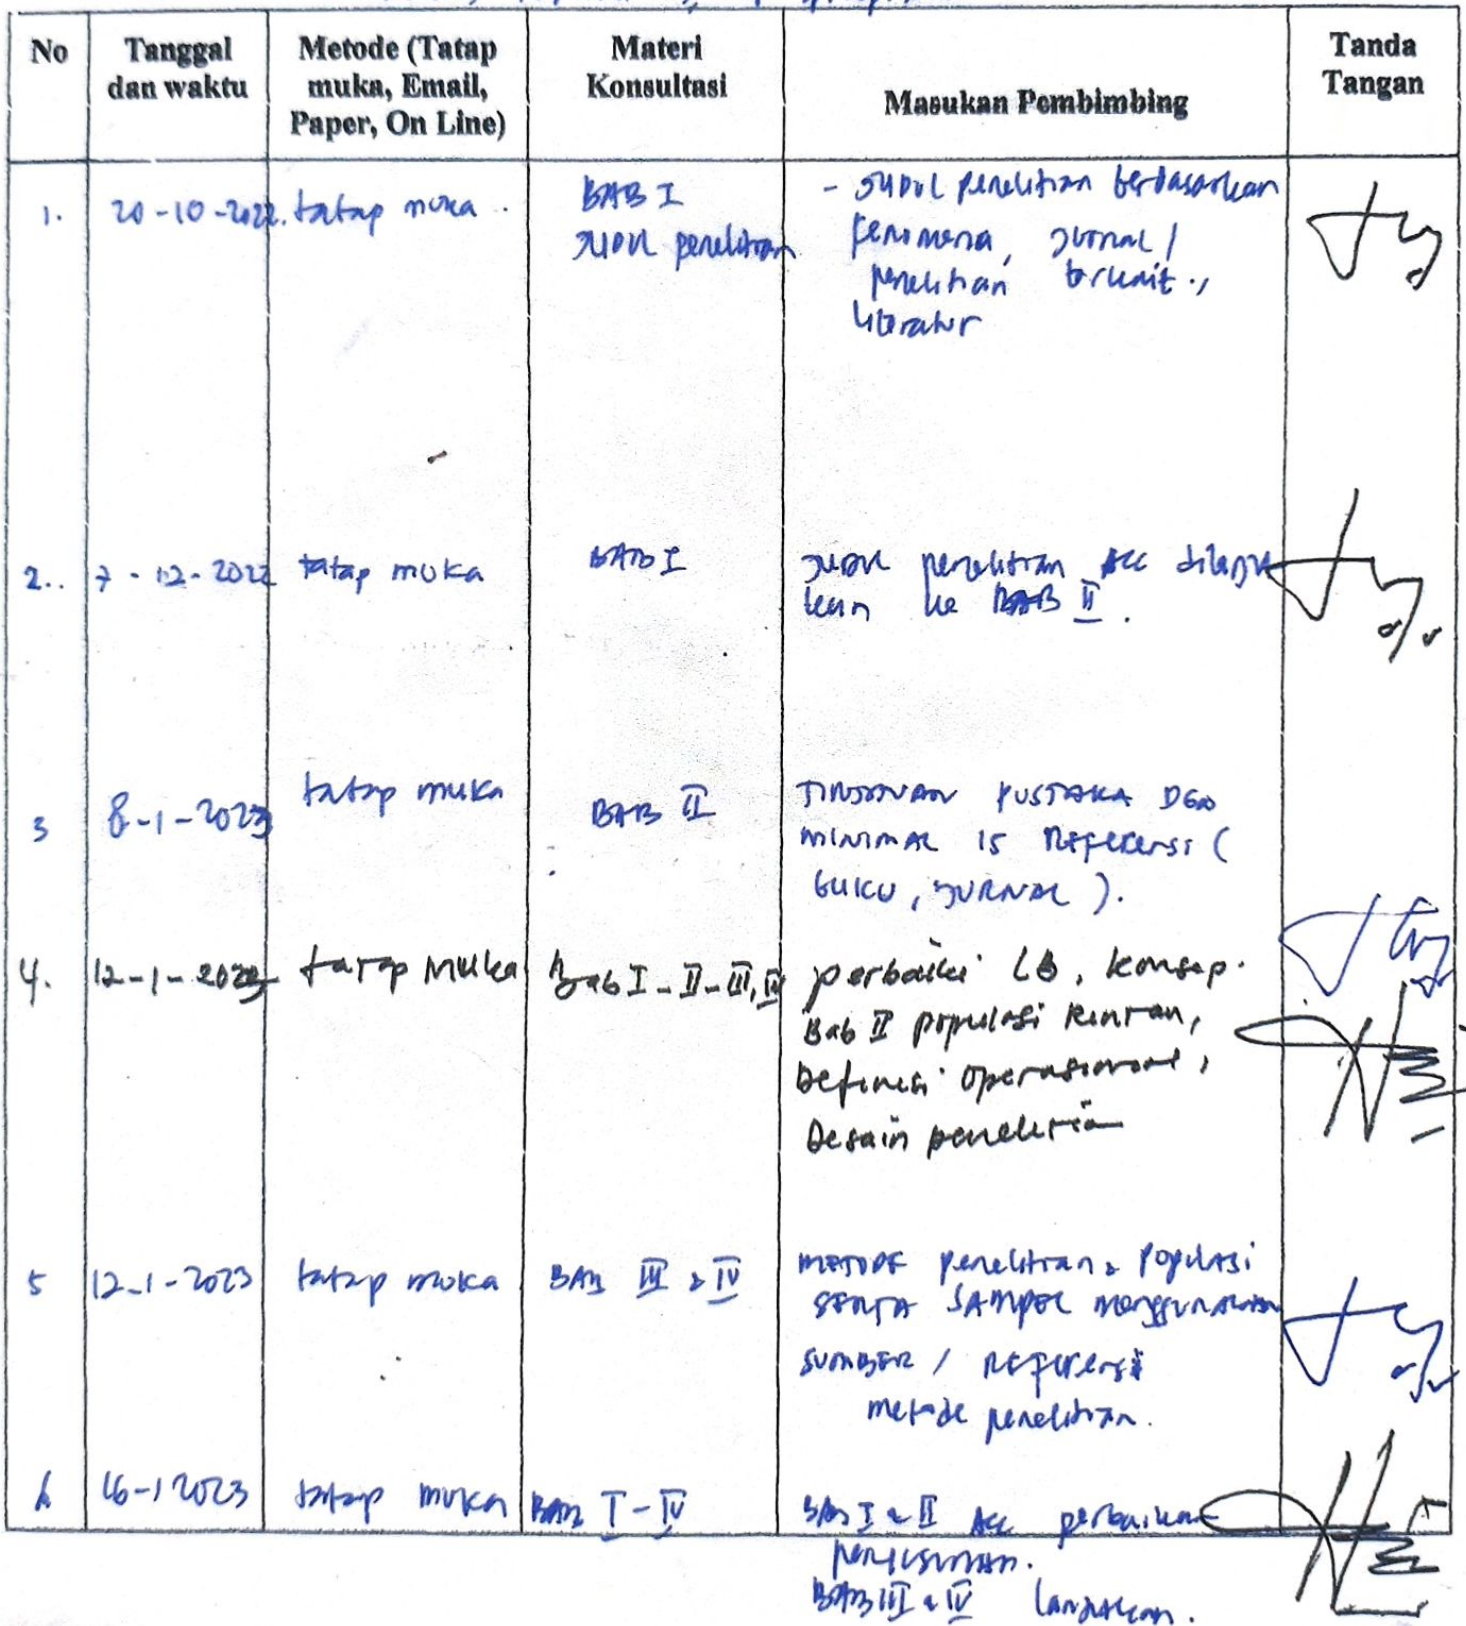 No
Tanggal
dan waktu
Metode (Tatap
muka, Email,
Paper, On Line)
Materi
Konsultasi
Masukan Pembimbing
Tanda
Tangan
1.
20-10-2022.
tatap muka.
BAB I
Judul penelitian
- Judul penelitian berdasarkan
fenomena, jurnal /
penelitian terkait.,
literatur
2..
7-12-2022
tatap muka
BAB I
Judul penelitian ACC dilanjut
kan ke BAB II.
3
8-1-2023
tatap muka
BAB II
TINJAUAN PUSTAKA DGN
MINIMAL 15 Referensi (
BUKU, JURNAL).
4.
12-1-2023
tatap muka
Bab I-II-III, IV
perbaiki LB, konsep.
Bab II populasi rentan,
Definisi operasional,
Desain penelitian
5
12-1-2023
tatap muka
BAB III & IV
METODE penelitian & Populasi
SERTA SAMPEL menggunakan
SUMBER / Referensi
metode penelitian.
6
16-1 2023
tatap muka
BAB I - IV
BAB I & II ACC perbaikan
penyusunan.
BAB III & IV lanjutkan.